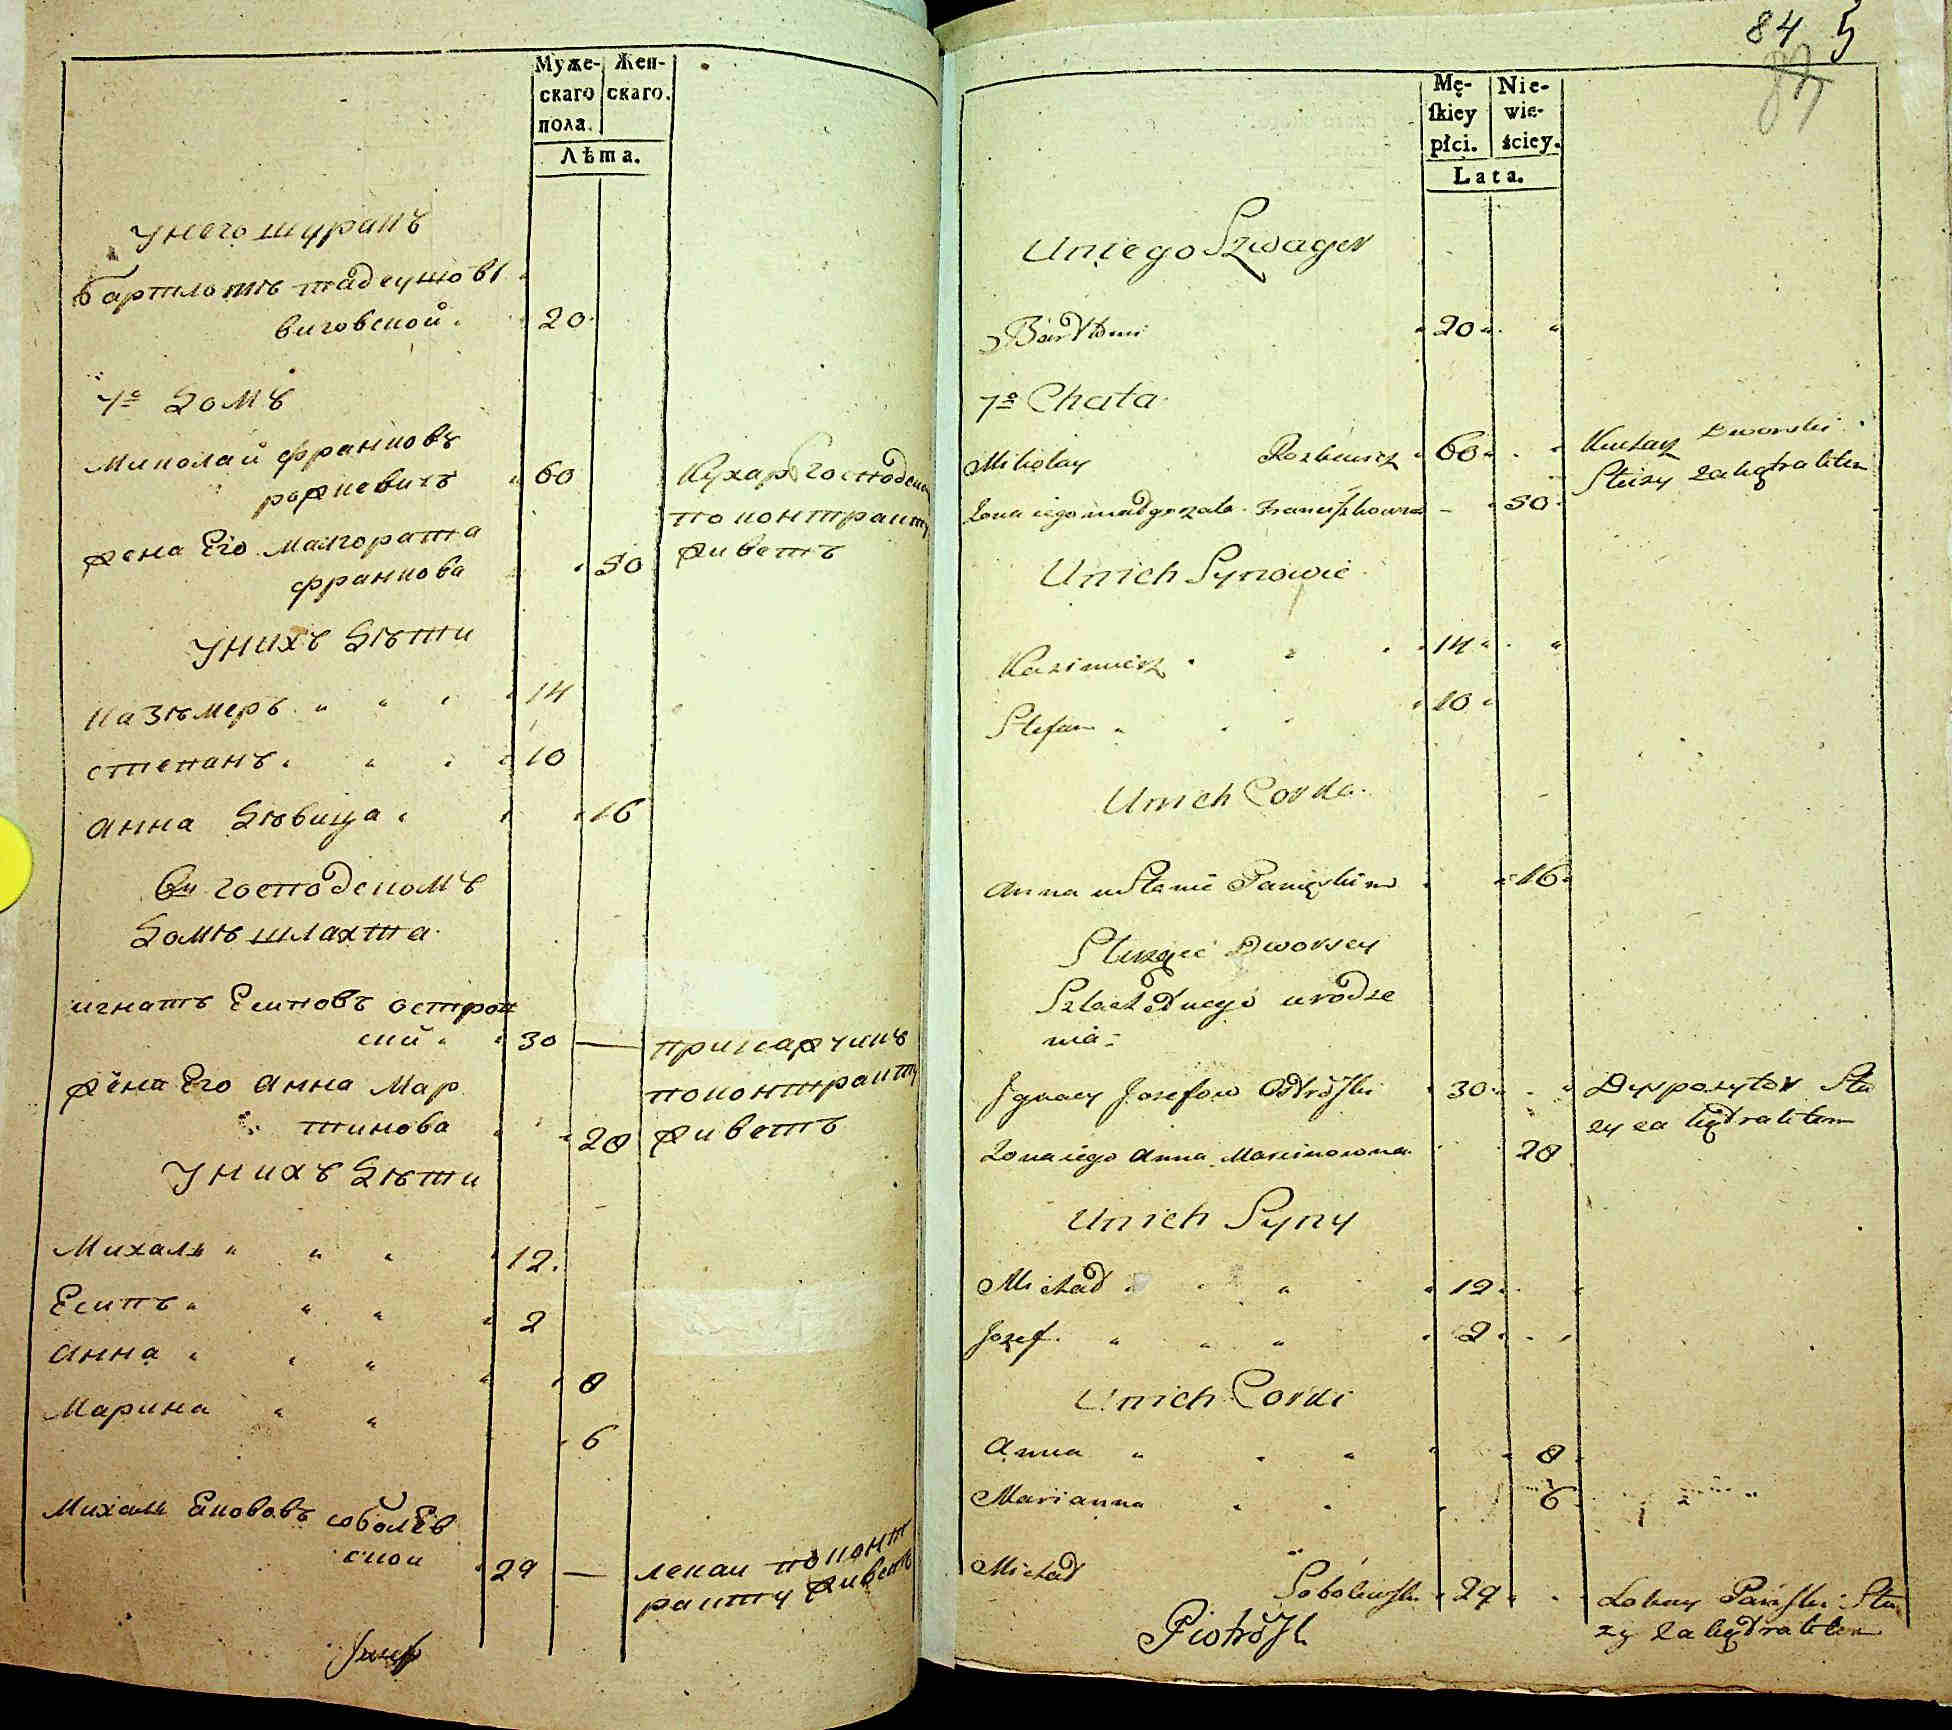 Муже- Жен-
скаго скаго.
пола.
Лѣта.
Унего шуринъ
Бартломѣ тадеушовъ
виговской. 20
7º Домъ
Миколай францовъ
рожкевичъ 60 Кухаръ Господской
по контракту
живетъ
жена Его малгората
францова 50
Унихъ дѣти
казѣмеръ 14
степанъ 10
Анна дѣвица 16
въ господскомъ
домѣ шлахта
игнатъ Есиповъ остров
ский 30 — приказчикъ
поконтракту
живетъ
жена Его Анна Мар
тинова 28
Унихъ дѣти
Михалъ 12
Есипъ 2
Анна 8
Марина 6
Михалъ Яковъ соболев
ской 29 — лекаи по конт
ракту живетъ
84 5
87
Mę- Nie-
skiey wie-
płci. ściey.
Lata.
U niego Szwager
Bartłomi 20
7º Chata
Mikołay Rozkiewicz 60 Kucharz Dworski
Służy za kątraktem
Zona iego małgorzata Franciszkowna 50
U nich Synowie
Kazimierz 14
Stefan 10
U nich Corka
Anna w Stanie Panięskim 16
Służącé Dworscy
Szlachetnego urodze
nia
Ignacy Josefow Ostroski 30 Dysponytor Słu
zy za kątraktem
Zona iego Anna Marcinowna 28
U nich Syny
Michał 12
Jozef 2
U nich Corki
Anna 8
Marianna 6
Michał Sobolewski 29 Lokay Pański Słu
zy za kątraktem